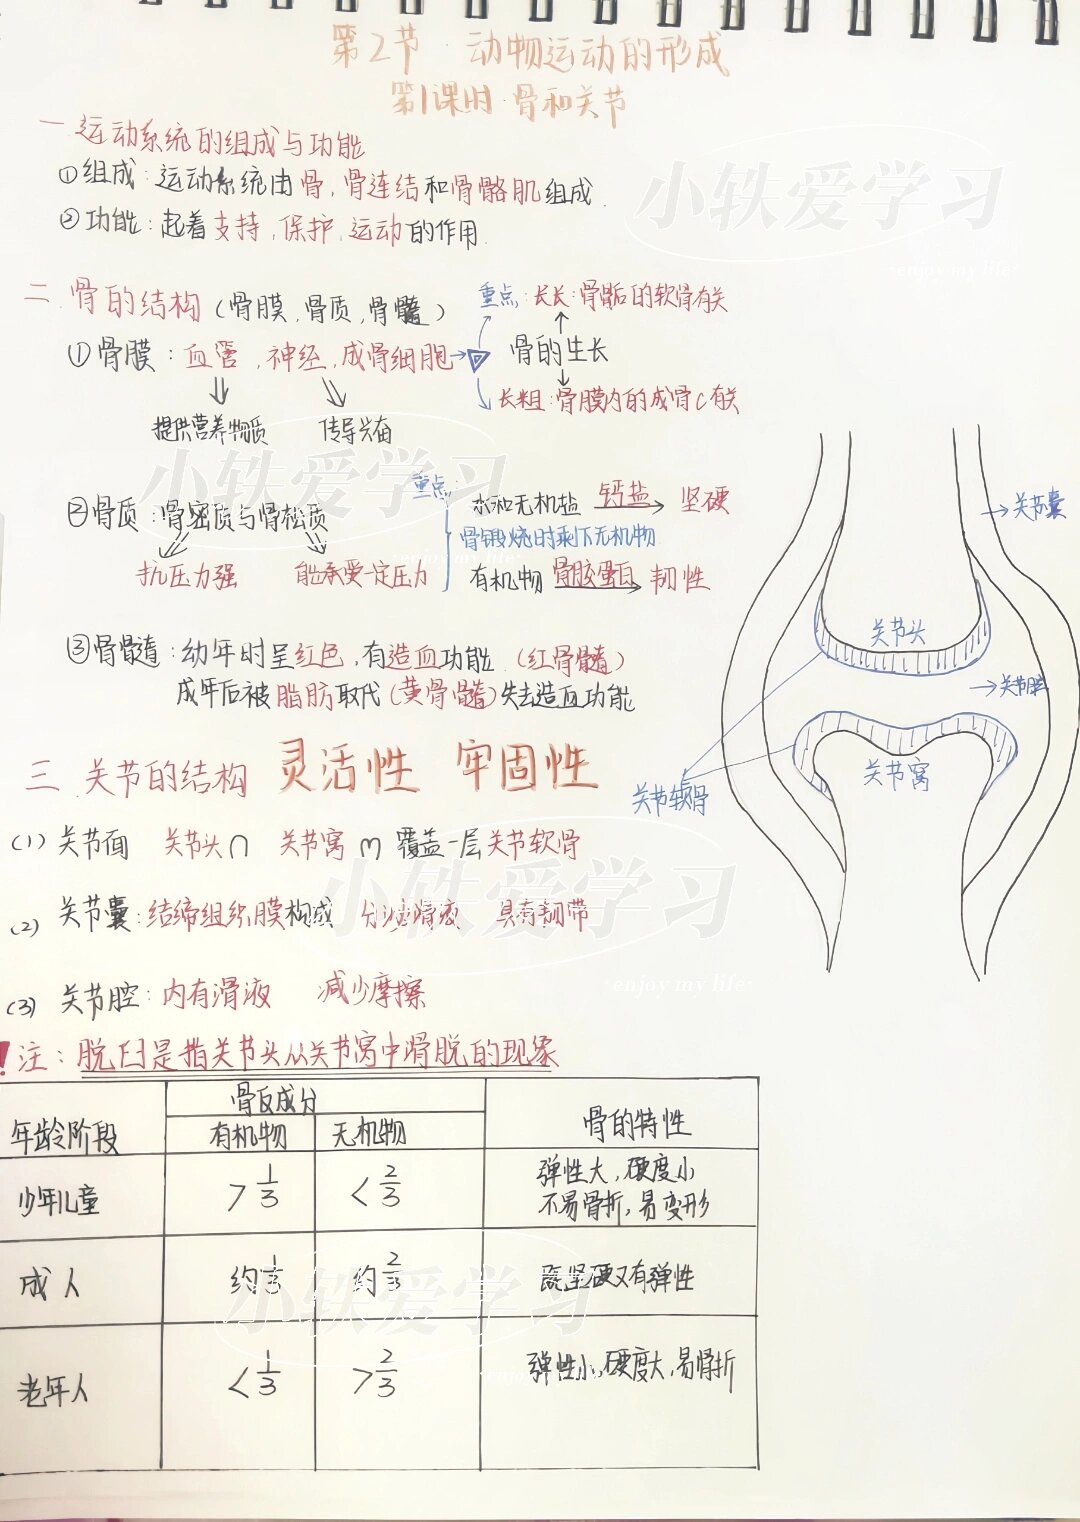 第2节 动物运动的形成
第1课时 骨和关节
一 运动系统的组成与功能
①组成：运动系统由骨，骨连结和骨骼肌组成．
②功能：起着支持，保护，运动的作用．
二 骨的结构（骨膜，骨质，骨髓）
重点：长长：骨骺后的软骨有关
①骨膜：血管，神经，成骨细胞
骨的生长
长粗：骨膜内的成骨C有关
提供营养物质 传导兴奋
重点：
水和无机盐 钙盐 坚硬
②骨质：骨密质与骨松质
骨锻烧时剩下无机物
抗压力强 能承受一定压力
有机物 骨胶蛋白 韧性
③骨髓：幼年时呈红色，有造血功能（红骨髓）
成年后被脂肪取代（黄骨髓）失去造血功能
三 关节的结构 灵活性 牢固性
(1) 关节面 关节头∩ 关节窝 m 覆盖一层关节软骨
(2) 关节囊：结缔组织膜构成 分泌滑液 具有韧带
(3) 关节腔：内有滑液 减少摩擦
！注：脱臼是指关节头从关节窝中滑脱的现象
关节囊
关节头
关节腔
关节窝
关节软骨
年龄阶段 骨的成分 骨的特性
有机物 无机物
少年儿童 >1/3 <2/3 弹性大，硬度小
不易骨折，易变形
成人 约1/3 约2/3 既坚硬又有弹性
老年人 <1/3 >2/3 弹性小，硬度大，易骨折
小轶爱学习
enjoy my life
小轶爱学习
enjoy my life
小轶爱学习
enjoy my life
小轶爱学习
enjoy my life